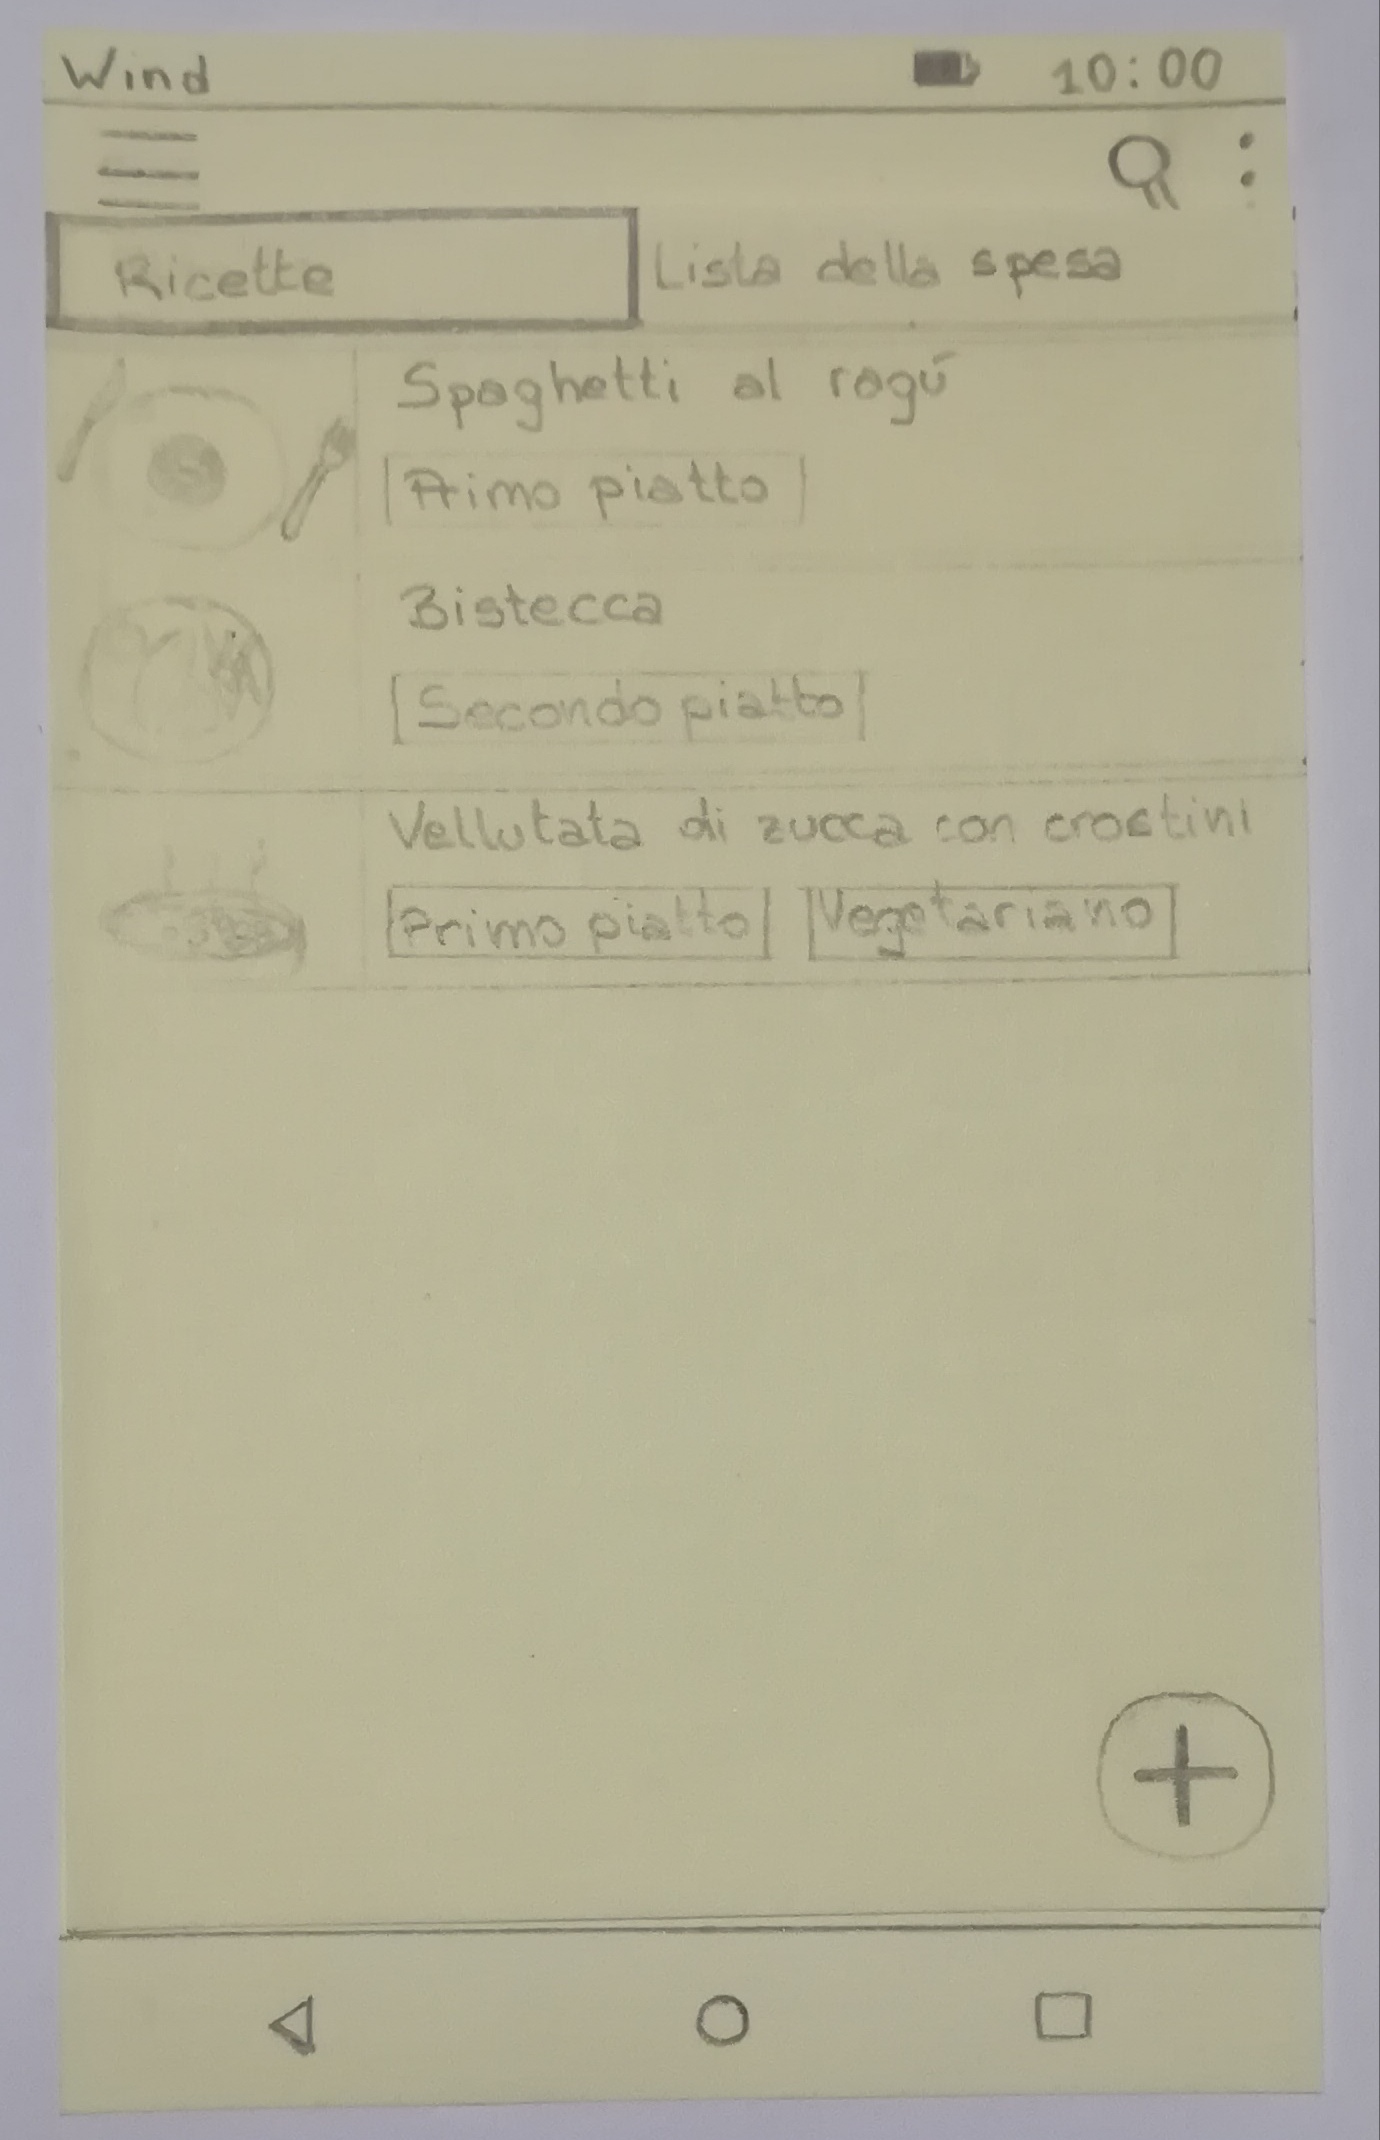 Wind 10:00
Ricette Lista della spesa
Spaghetti al ragú
Primo piatto
Bistecca
Secondo piatto
Vellutata di zucca con crostini
Primo piatto Vegetariano